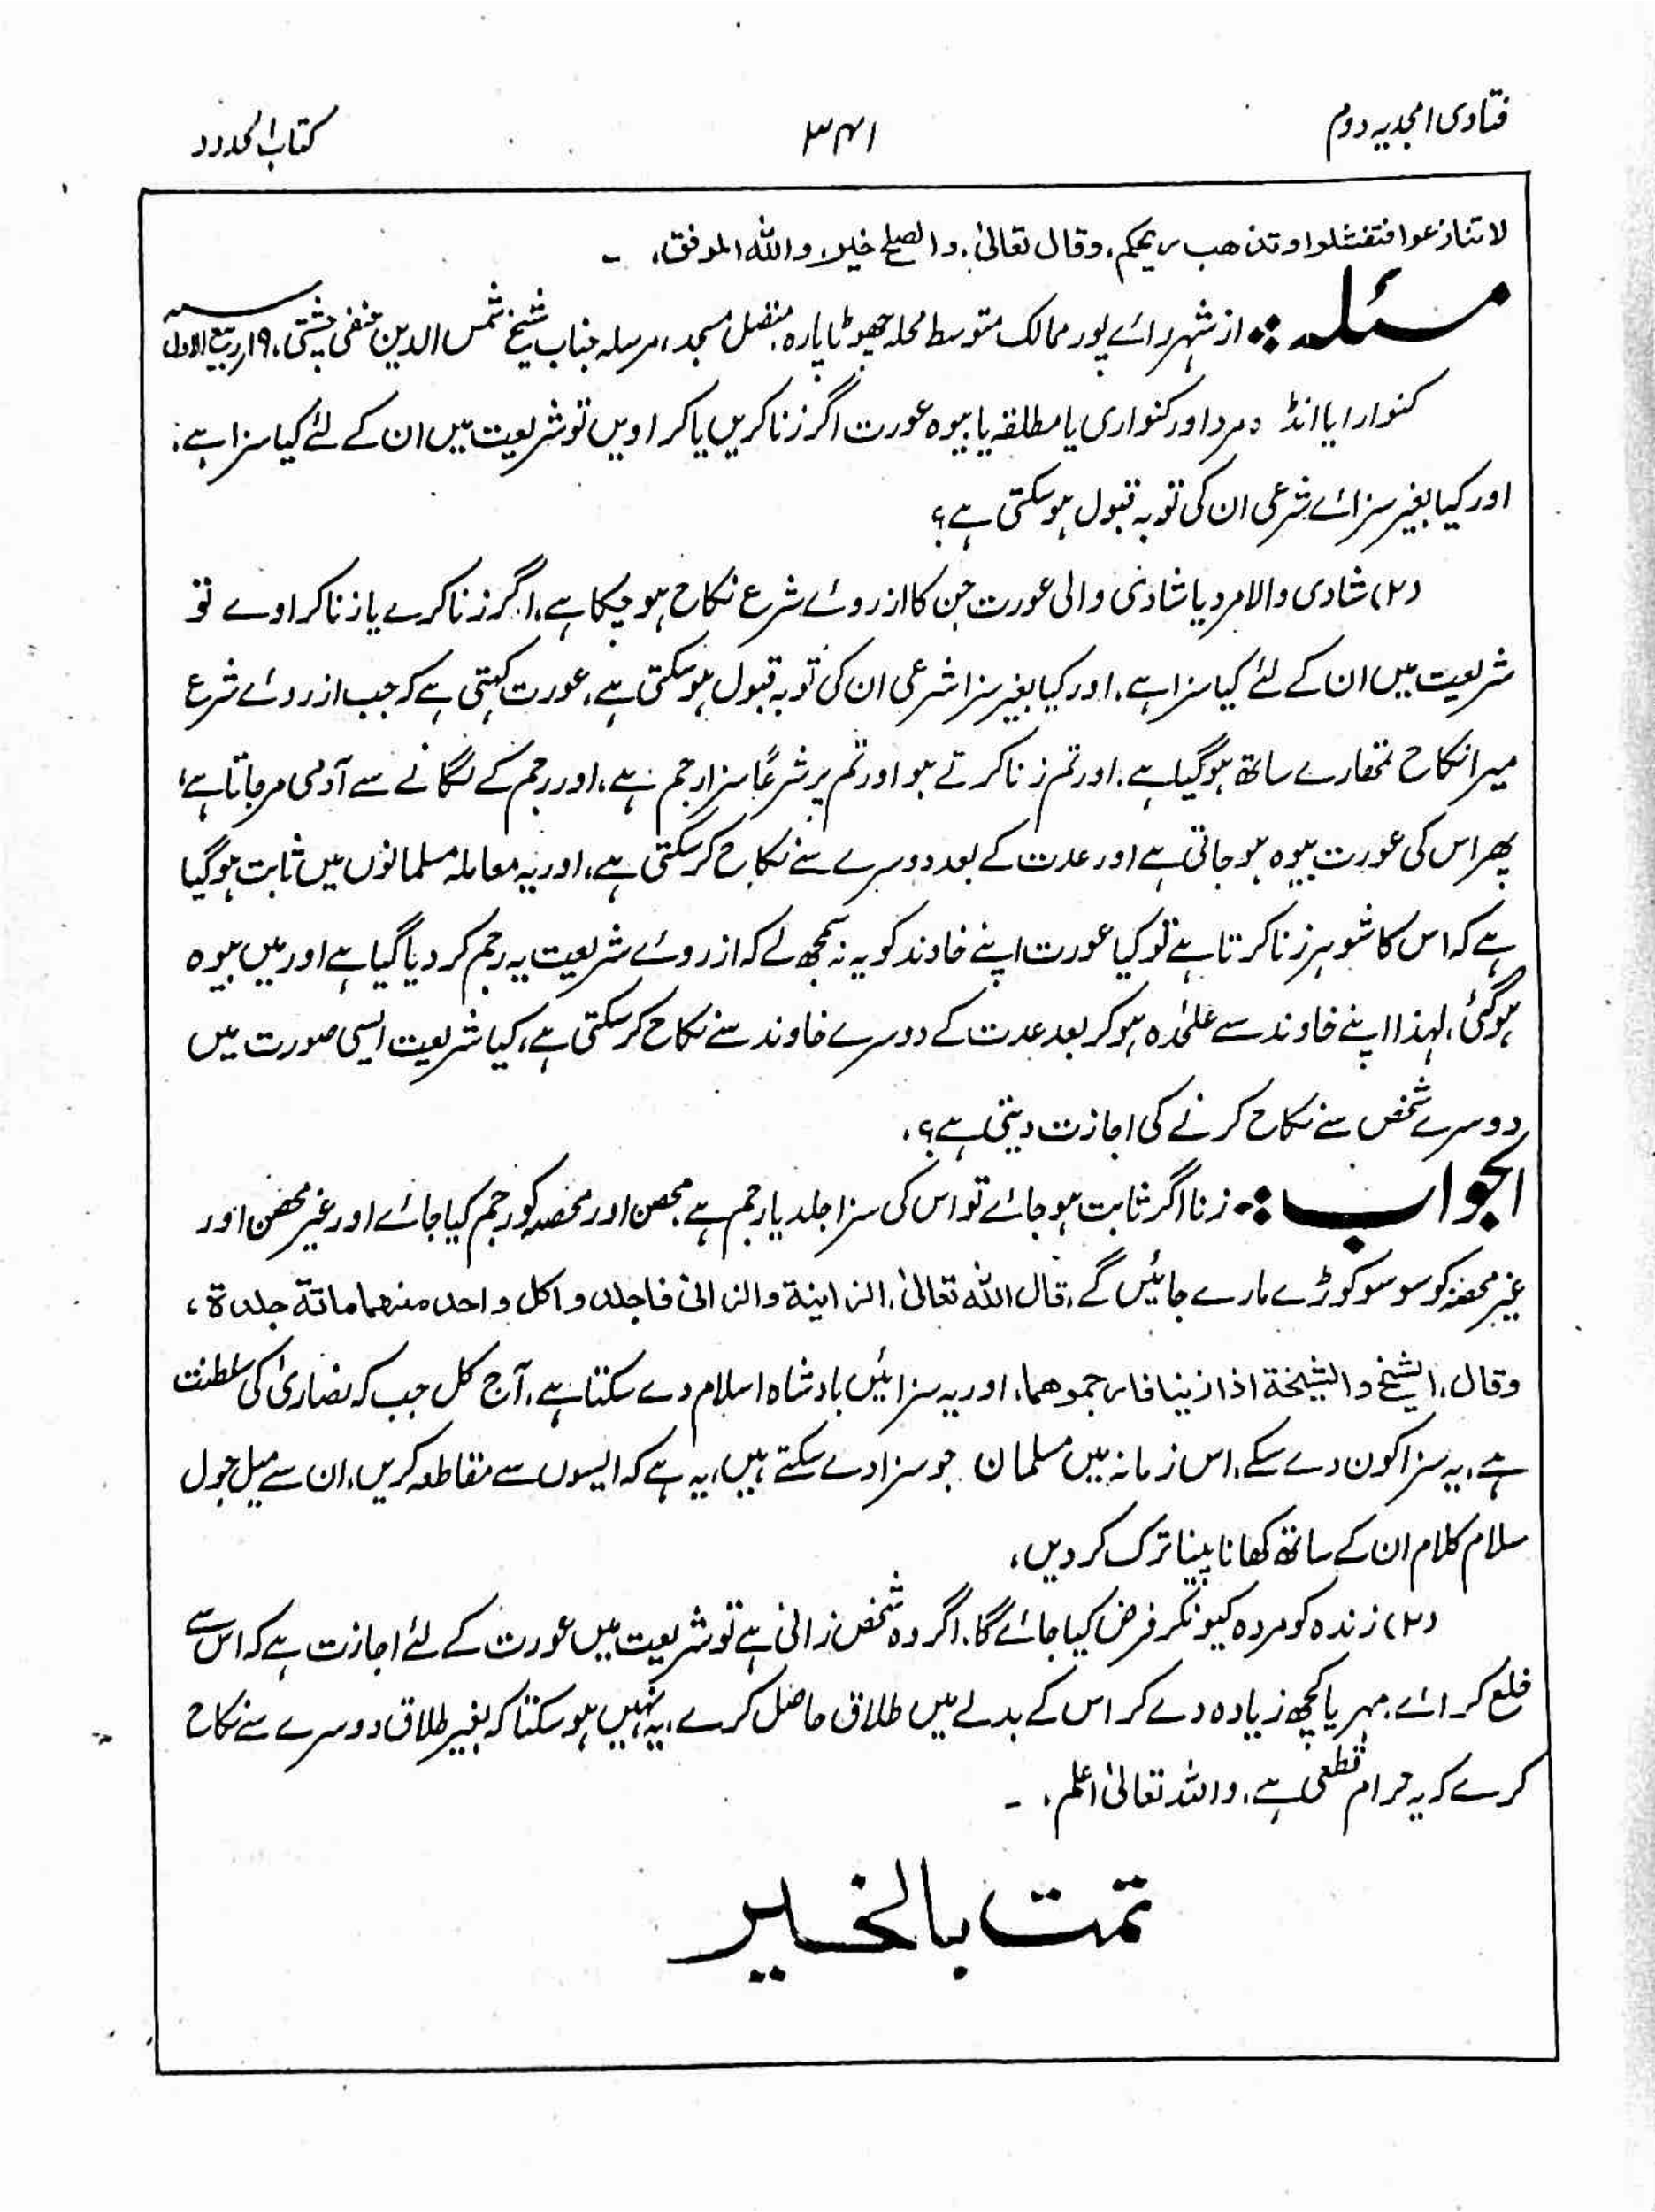 فتاویٰ امجدیہ دوم ۳۴۱ کتاب الحدود
لا تنازعوا فتفشلوا وتذهب ريحكم، وقال تعالیٰ، والصلح خير، والله الموفق، ـ
مسئلہ :۔ از شہر رائے پور ممالک متوسط محلہ چھوٹا پارہ، متصل مسجد، مرسلہ جناب شیخ شمس الدین حنفی چشتی، ۱۹؍ ربیع الاول
کنوارا یا انڈ دمرد اور کنواری یا مطلقہ یا بیوہ عورت اگر زنا کریں یا کراویں تو شریعت میں ان کے لئے کیا سزا ہے،
اور کیا بغیر سزائے شرعی ان کی توبہ قبول ہوسکتی ہے؟
(۲) شادی والا مرد یا شادی والی عورت جن کا ازروئے شرع نکاح ہوچکا ہے، اگر زنا کرے یا زنا کراوے تو
شریعت میں ان کے لئے کیا سزا ہے، اور کیا بغیر سزا شرعی ان کی توبہ قبول ہوسکتی ہے، عورت کہتی ہے کہ جب ازروئے شرع
میرا نکاح تمھارے ساتھ ہوگیا ہے، اور تم زنا کرتے ہو اور تم پر شرعاً سزا رجم ہے، اور رجم کے لگانے سے آدمی مرجاتا ہے،
پھر اس کی عورت بیوہ ہوجاتی ہے اور عدت کے بعد دوسرے سے نکاح کرسکتی ہے، اور یہ معاملہ مسلمانوں میں ثابت ہوگیا
ہے کہ اس کا شوہر زنا کرتا ہے تو کیا عورت اپنے خاوند کو یہ نہ سمجھ لے کہ ازروئے شریعت یہ رجم کردیا گیا ہے اور میں بیوہ
ہوگئی، لہذا اپنے خاوند سے علٰحدہ ہوکر بعد عدت کے دوسرے خاوند سے نکاح کرسکتی ہے، کیا شریعت ایسی صورت میں
دوسرے شخص سے نکاح کرنے کی اجازت دیتی ہے؟،
الجواب :۔ زنا اگر ثابت ہوجائے تو اس کی سزا جلد یا رجم ہے محصن اور محصنہ کو رجم کیا جائے اور غیر محصن اور
غیر محصنہ کو سو سو کوڑے مارے جائیں گے، قال الله تعالیٰ، الزانية والزانی فاجلدوا کل واحد منهما مائة جلدة،
وقال، الشیخ والشیخة اذا زنیا فارجموهما، اور یہ سزائیں بادشاہ اسلام دے سکتا ہے، آج کل جب کہ نصاریٰ کی سلطنت
ہے، یہ سزا کون دے سکے، اس زمانہ میں مسلمان جو سزا دے سکتے ہیں، یہ ہے کہ ایسوں سے مقاطعہ کریں، ان سے میل جول
سلام کلام ان کے ساتھ کھانا پینا ترک کردیں،
(۲) زندہ کو مردہ کیونکر فرض کیا جائے گا، اگر وہ شخص زانی ہے تو شریعت میں عورت کے لئے اجازت ہے کہ اس سے
خلع کرائے، مہر یا کچھ زیادہ دے کر اس کے بدلے میں طلاق حاصل کرے، یہ نہیں ہوسکتا کہ بغیر طلاق دوسرے سے نکاح
کرے کہ یہ حرام قطعی ہے، واللہ تعالیٰ اعلم، ـ
تمت بالخیر